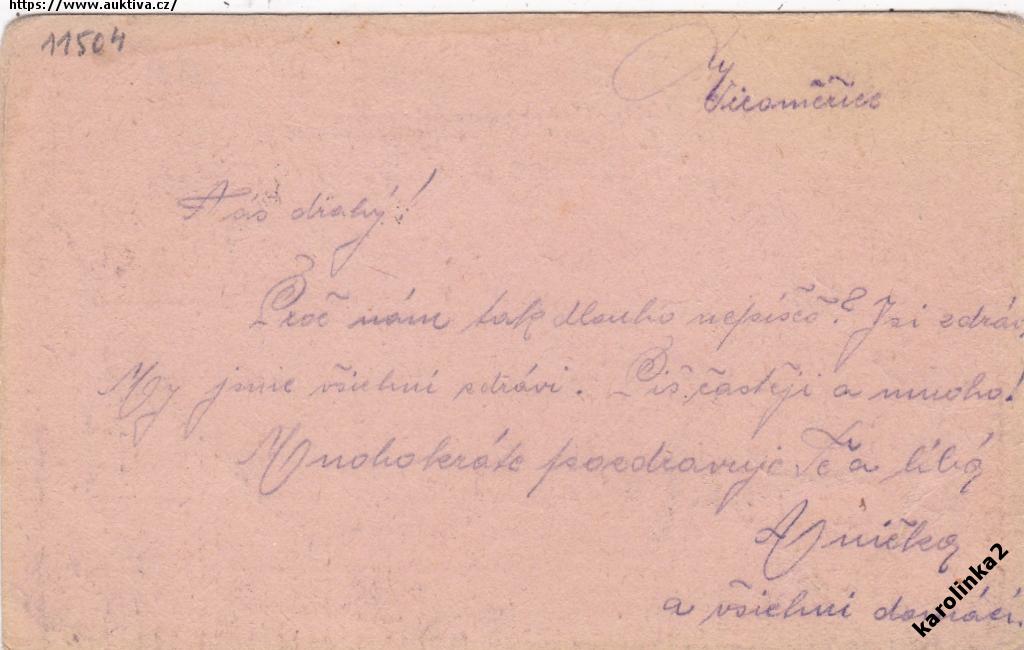 https://www.auktiva.cz/
11504
Náš drahý!
Proč nám tak dlouho nepíšeš? Jsi zdráv
My jsme všichni zdrávi. Piš častěji a mnoho!
Mnohokráte pozdravuje Tě a líbá
Anička
a všichni domácí.
karolinka2